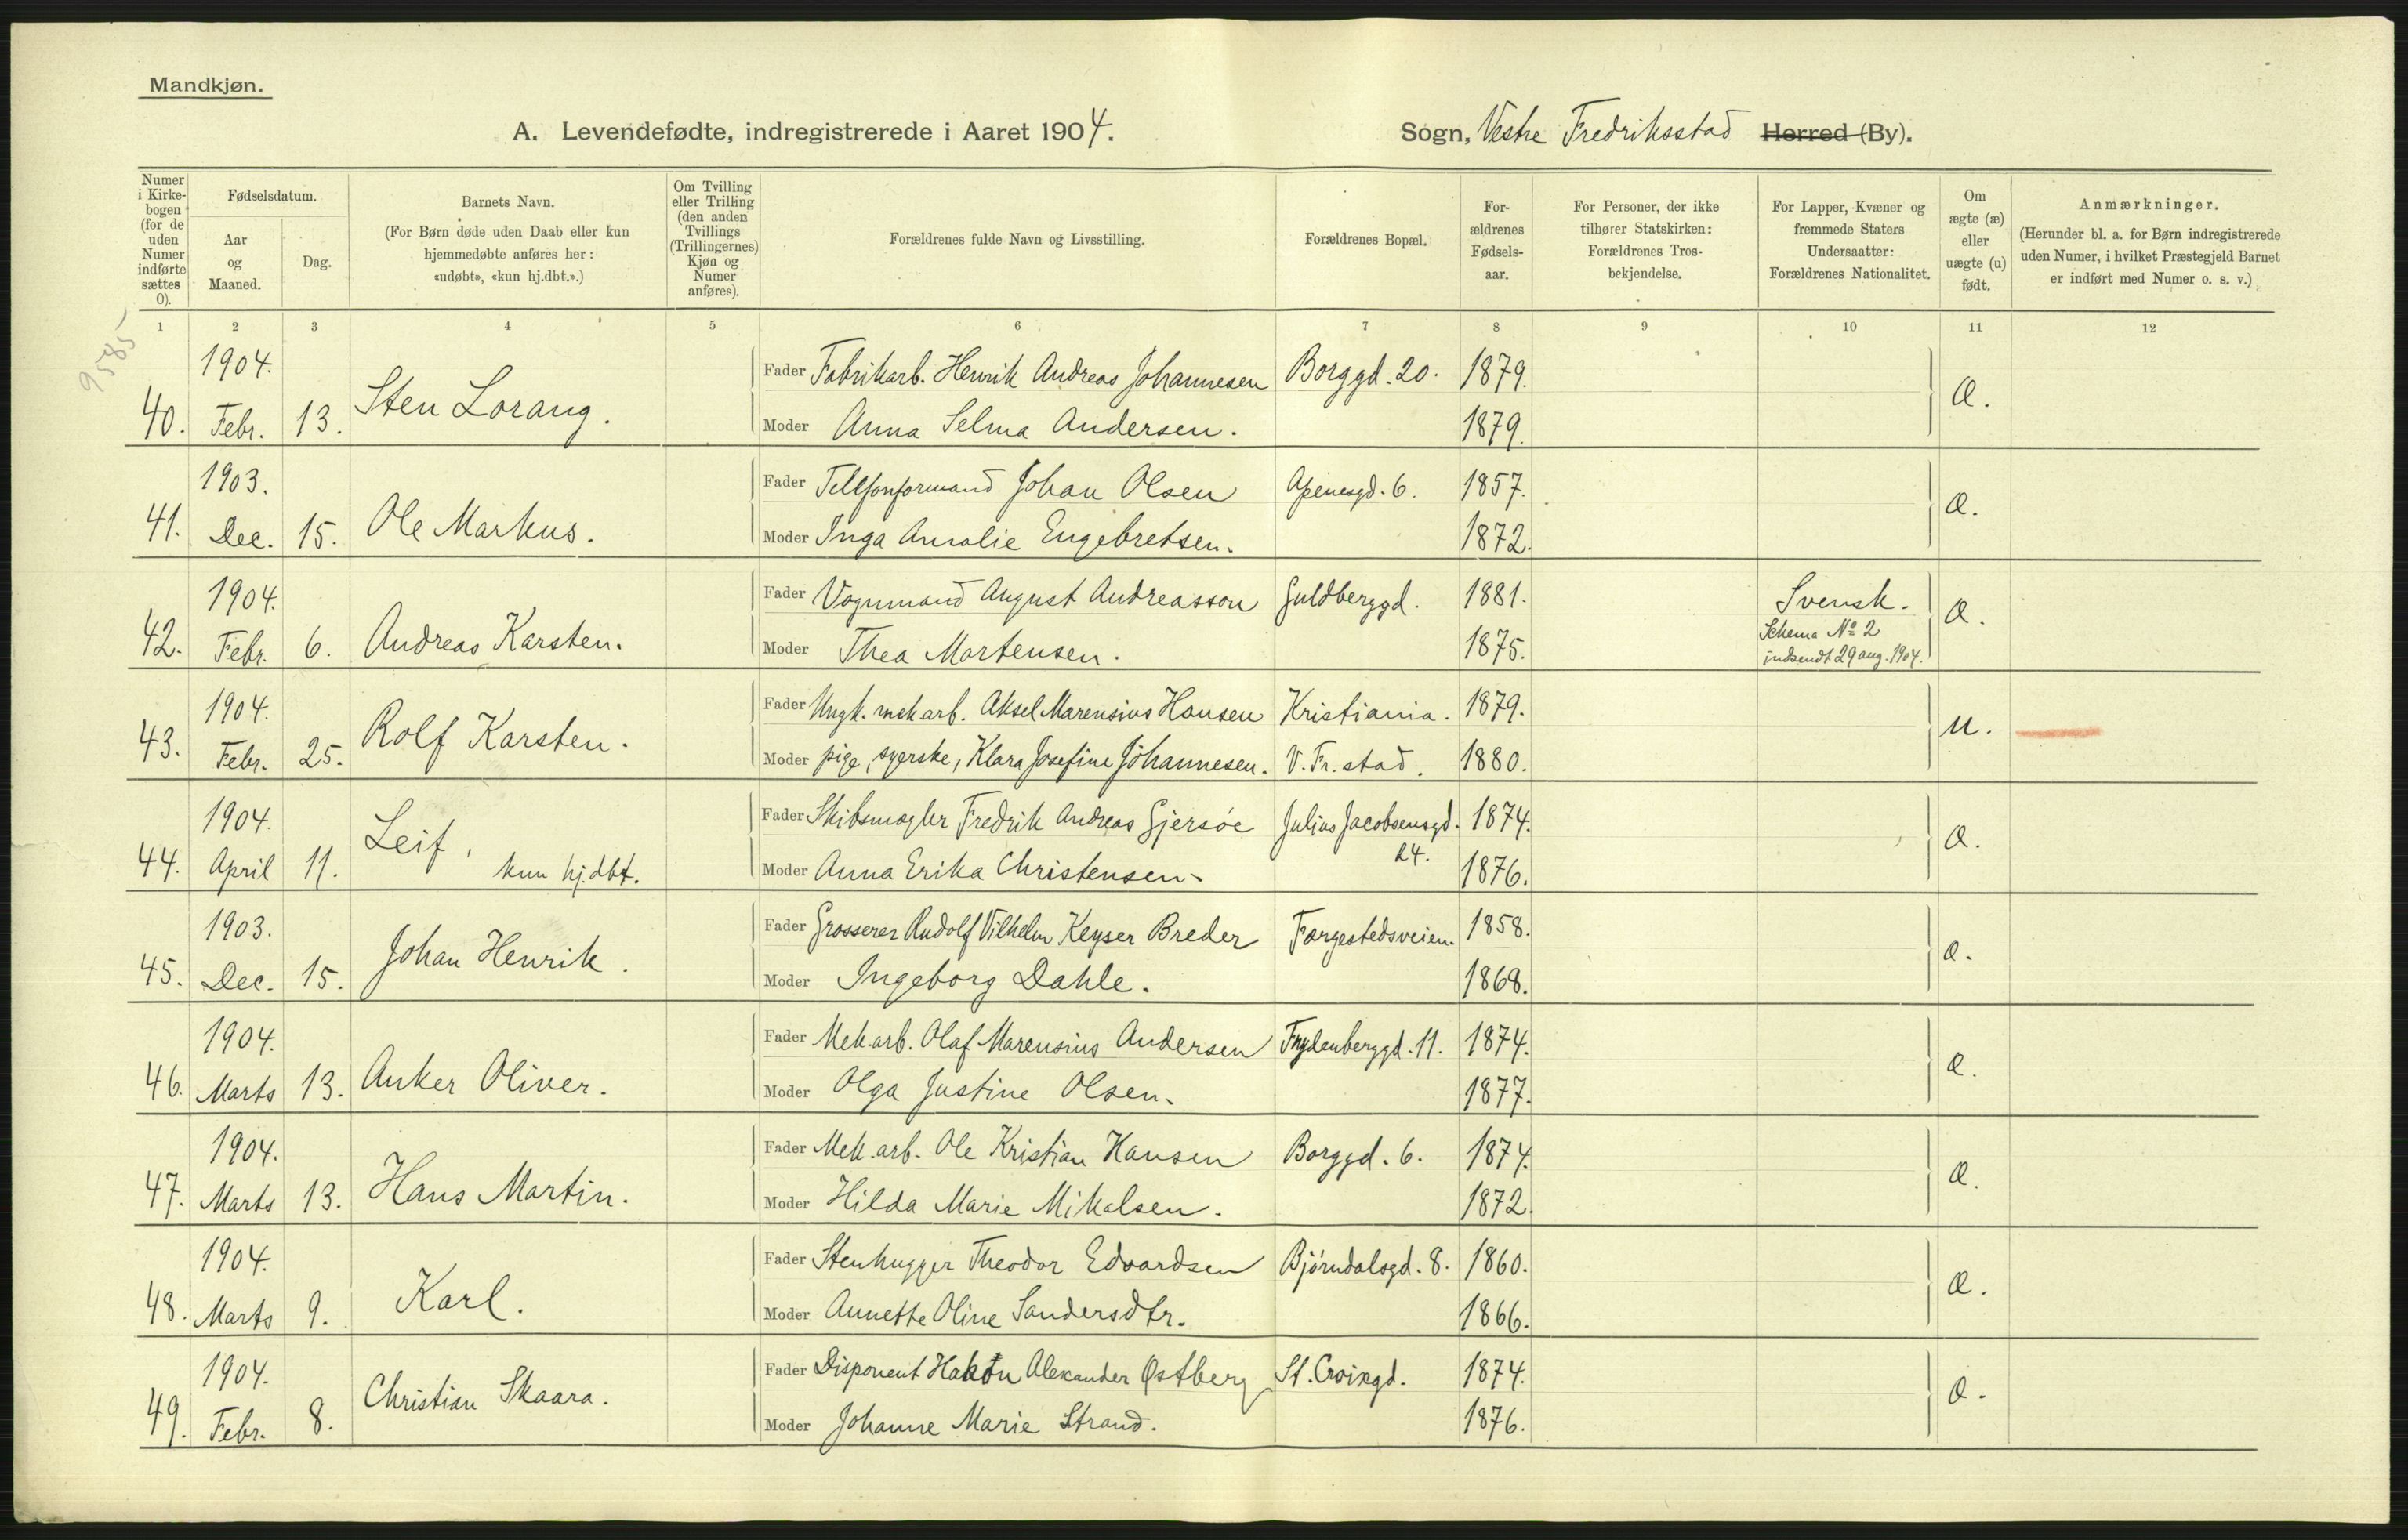 Mandkjøn.
A. Levendefødte, indregistrerede i Aaret 1904. Sogn, Vestre Fredriksstad Herred (By).
Numer i Kirkebogen (for de uden Numer indførte sættes 0).
Fødselsdatum.
Aar og Maaned.
Dag.
Barnets Navn.
(For Børn døde uden Daab eller kun
hjemmedøbte anføres her:
«udøbt», «kun hj.dbt.».)
Om Tvilling
eller Trilling
(den anden
Tvillings
(Trillingernes)
Kjøn og
Numer
anføres).
Forældrenes fulde Navn og Livsstilling.
Forældrenes Bopæl.
For-
ældrenes
Fødsels-
aar.
For Personer, der ikke
tilhører Statskirken:
Forældrenes Tros-
bekjendelse.
For Lapper, Kvæner og
fremmede Staters
Undersaatter:
Forældrenes Nationalitet.
Om
ægte (æ)
eller
uægte (u)
født.
Anmærkninger.
(Herunder bl. a. for Børn indregistrerede
uden Numer, i hvilket Præstegjeld Barnet
er indført med Numer o. s. v.)
1 2 3 4 5 6 7 8 9 10 11 12
9585
1904. Fader Fabrikarb. Henrik Andreas Johannesen Borggd. 20. 1879.
40. Febr. 13. Sten Lorang. Moder Anna Selma Andersen. 1879. Æ.
1903. Fader Telefonformand Johan Olsen Apenesgd. 6. 1857.
41. Dec. 15. Ole Markus. Moder Inga Amalie Engebretsen. 1872. Æ.
1904. Fader Vognmand August Andreasson Guldberggd. 1881. Svensk.
42. Febr. 6. Andreas Karsten. Moder Thea Mortensen. 1875. Schema No 2 indsendt 29 aug. 1904. Æ.
1904. Fader Ungk. mek arb. Aksel Marensius Hansen Kristiania. 1879.
43. Febr. 25. Rolf Karsten. Moder pige, syerske, Klara Josefine Johannesen. V. Fr. stad. 1880. U.
1904. Fader Skibsmægler Fredrik Andreas Gjersøe Julius Jacobsensgd. 24. 1874.
44. April 11. Leif, kun hj.dbt. Moder Anna Erika Christensen. 1876. Æ.
1903. Fader Grosserer Rudolf Vilhelm Keyser Breder Færgestedsveien. 1858.
45. Dec. 15. Johan Henrik. Moder Ingeborg Dahle. 1868. Æ.
1904. Fader Mek.arb. Olaf Marensius Andersen Frydenberggd. 11. 1874.
46. Marts 13. Anker Oliver. Moder Olga Justine Olsen. 1877. Æ.
1904. Fader Mek.arb. Ole Kristian Hansen Borggd. 6. 1874.
47. Marts 13. Hans Martin. Moder Hilda Marie Mikalsen. 1872. Æ.
1904. Fader Stenhugger Theodor Edvardsen Bjørndalsgd. 8. 1860.
48. Marts 9. Karl. Moder Annette Oline Sandersdtr. 1866. Æ.
1904. Fader Disponent Hakon Alexander Østberg St. Croixgd. 1874.
49. Febr. 8. Christian Skaara. Moder Johanne Marie Strand. 1876. Æ.